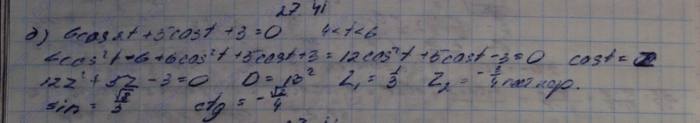 27.41
д) 6cos2t + 5cost + 3 = 0   4<t<6
6cos²t - 6 + 6cos²t + 5cost + 3 = 12cos²t + 5cost - 3 = 0   cost = z
12z² + 5z - 3 = 0   D = 13²   z₁ = 1/3   z₂ = -3/4
sin =   ctg = -√2/4